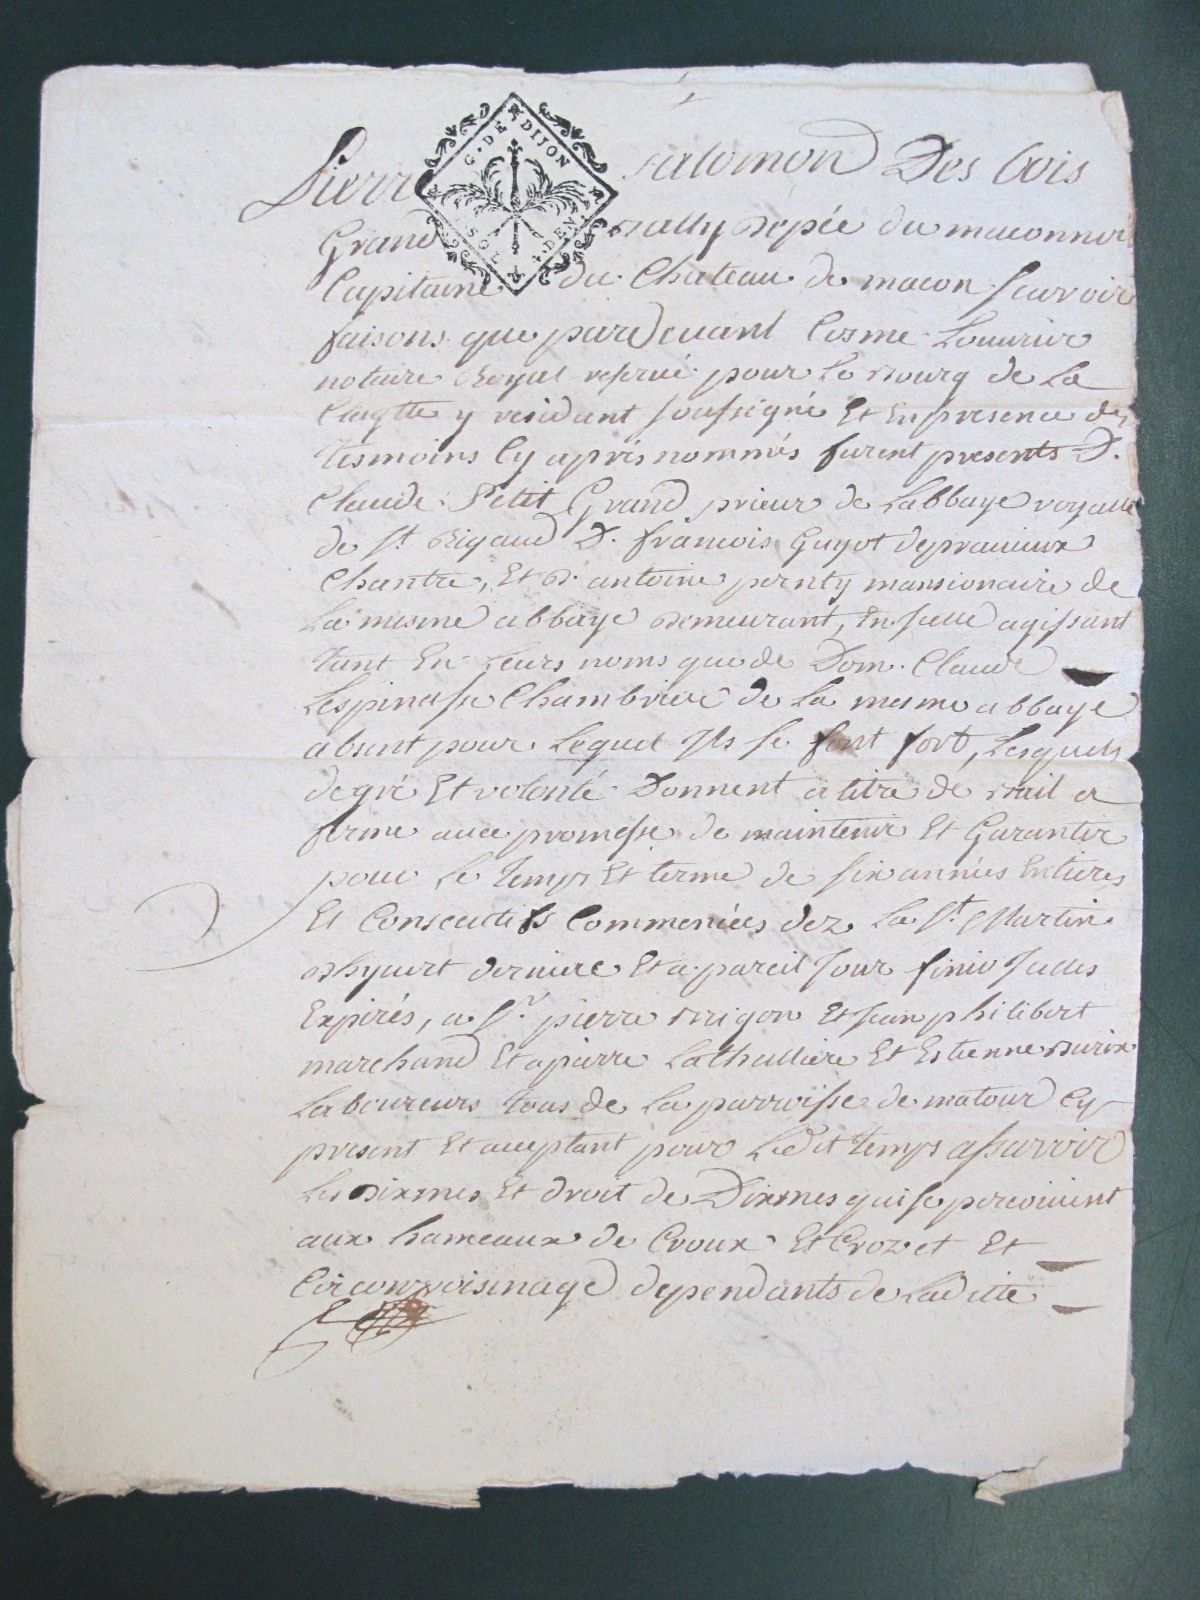 G. DE DIJON
SOL 4 DEN.
Pierre Salomon Des bois
Grand Bally Depée du maconnois
Capitaine du Chateau de macon scavoir
faisons que pardevant Cosme
notaire Royal reservé pour le Bourg de La
Claytte y residant soussigné Et En presence des
tesmoins Cy après nommés furent presents D.
Claude Petit Grand prieur de Labbaye royalle
de St. Rigaud D. françois Guyot depravieux
Chantre, Et D. antoine mansionaire de
La mesme abbaye Demeurant, En jcelle agissant
tant En Leurs noms que de Dom. Claude
Lespinasse Chambrier de La mesme abbaye
absent pour Lequel Jls se font fort, Lesquels
de gré Et volonté Donnent a titre de Bail a
ferme avec promesse de maintenir Et Garantir
pour Le temps Et terme de six années Entieres
Et Consecutifs Commencées dez La St. Martin
Dhyvert derniere Et a pareil Jour finir Jcelles
Expirés, a Sr. pierre Et Jean philibert
marchand Et a pierre Lathulliere Et Estienne
Laboureurs tous de La parroisse de matour Cy
present Et acceptant pour Ledit temps assavoir
Les Dixmes Et droit de Dixmes qui se percoivent
aux hameaux de Croux Et Crozet Et
Circonvoisinage dependants de Laditte